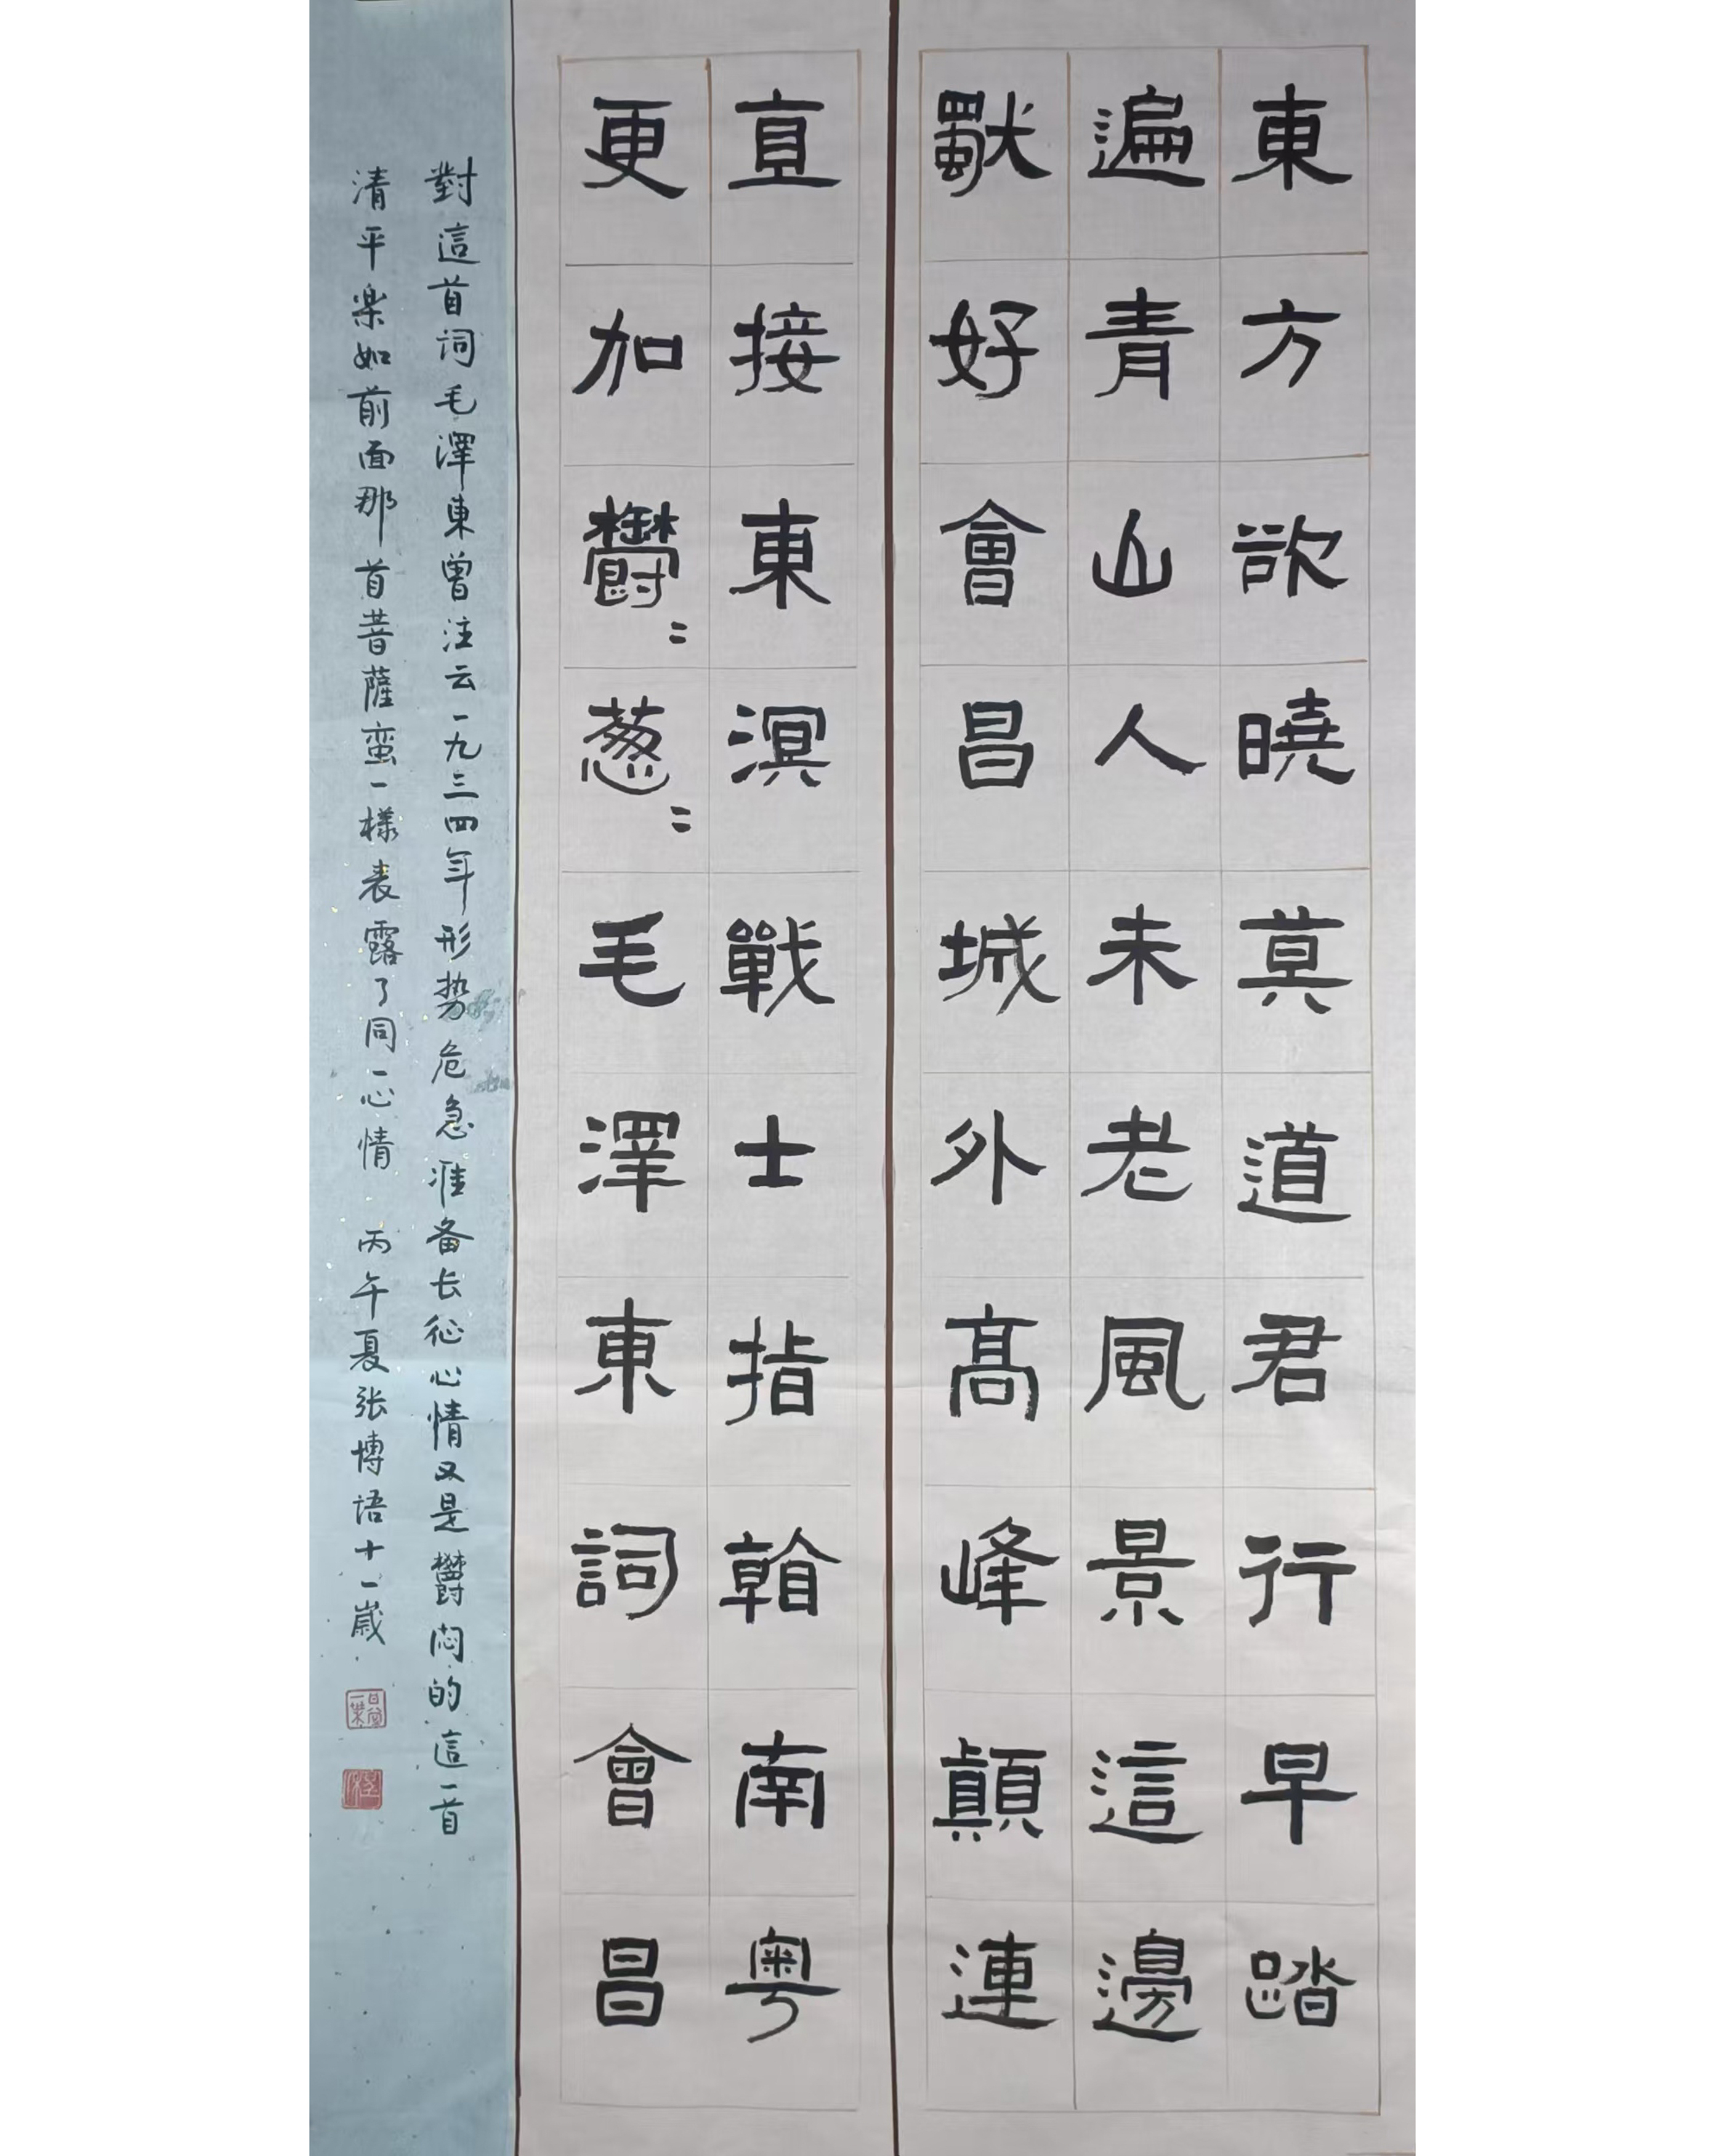 東方欲曉莫道君行早踏
遍青山人未老風景這邊
獨好會昌城外髙峰顛連
直接東溟戰士指韓南粤
更加欝〻葱〻毛澤東詞會昌
對這首词毛澤東曾注云一九三四年形势危急准备长征心情又是欝闷的這一首
清平楽如前面那首菩薩蛮一樣表露了同一心情 丙午夏张博语十一歲